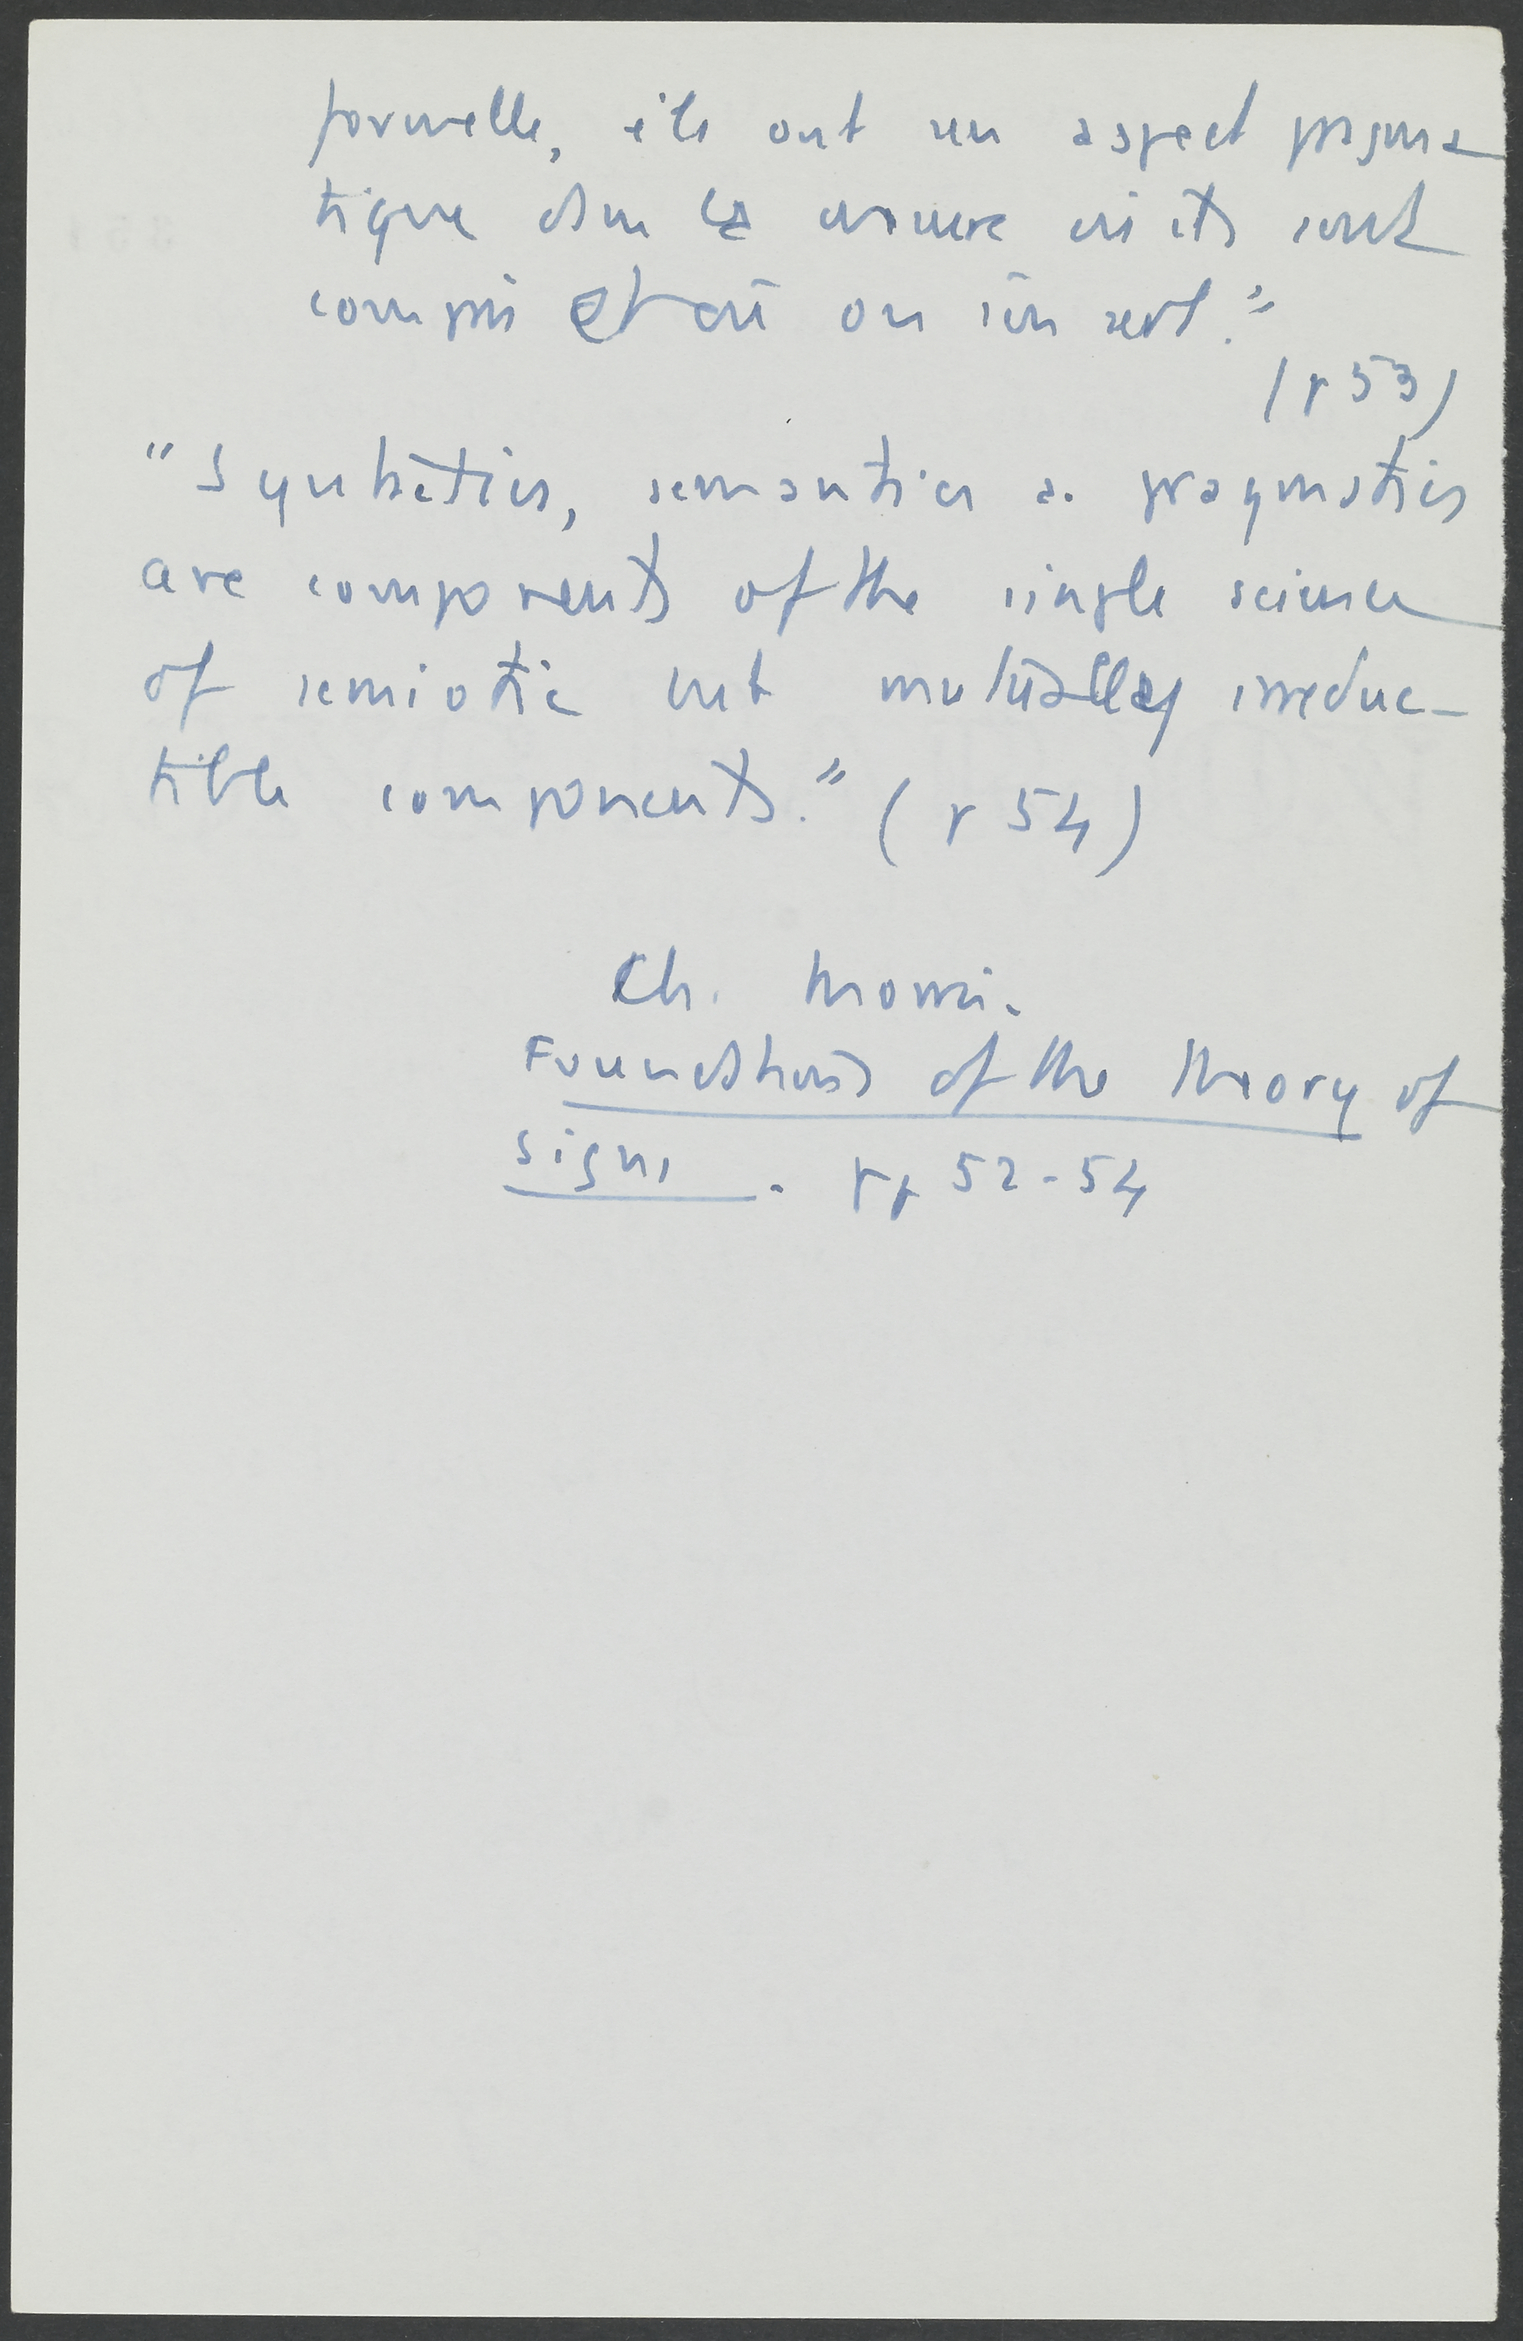 formelle, ils ont un aspect pragma
tique dans la mesure où ils sont
compris et où on s'en sert."
(p 53)
"Syntactics, semantics a. pragmatics
are components of the single science
of semiotic but mutually irreduc-
tible components." (p 54)
Ch. Morris.
Foundations of the theory of
signs. pp 52-54